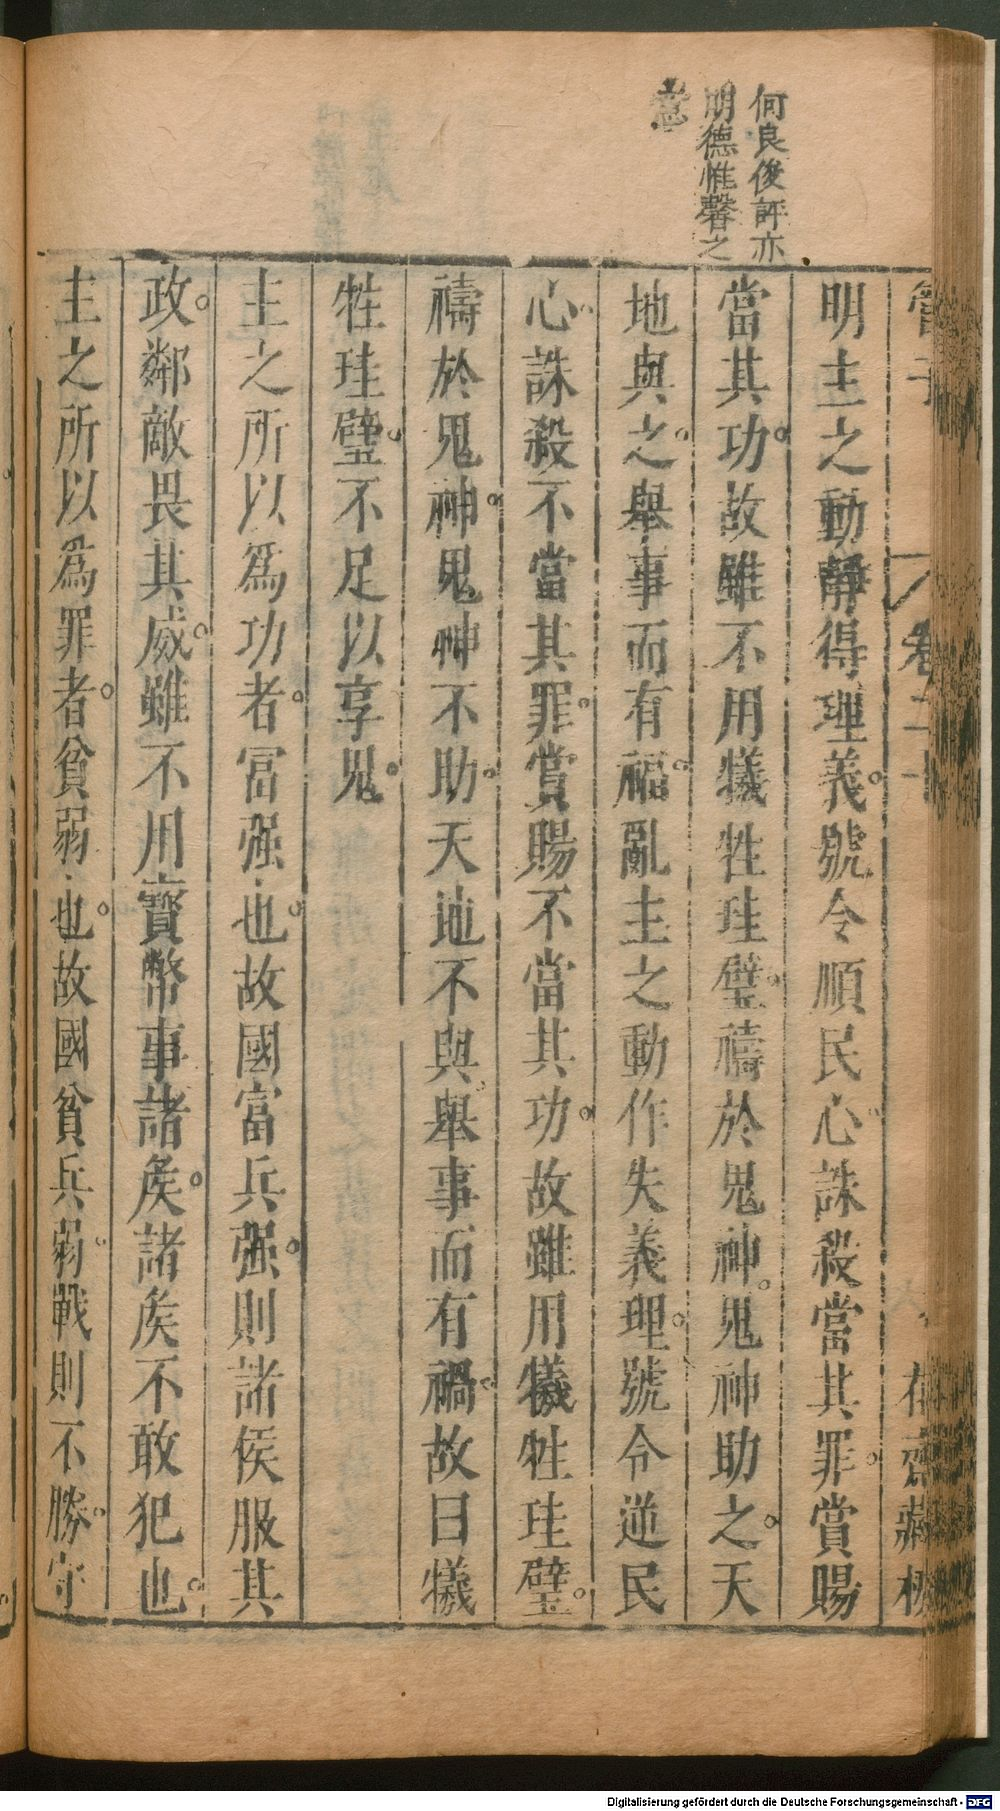 何良俊評亦
明德惟馨之
意
管子
卷二十
明主之動靜得理義號令順民心誅殺當其罪賞賜
當其功故雖不用犧牲珪璧禱於鬼神鬼神助之天
地與之舉事而有福亂主之動作失義理號令逆民
心誅殺不當其罪賞賜不當其功故雖用犧牲珪璧
禱於鬼神鬼神不助天地不與舉事而有禍故曰犧
牲珪璧不足以享鬼
主之所以爲功者冨强也故國富兵强則諸侯服其
政鄰敵畏其威雖不用寶幣事諸矦諸矦不敢犯也
主之所以爲罪者貧弱也故國貧兵弱戰則不勝守
Digitalisierung gefördert durch die Deutsche Forschungsgemeinschaft - DFG